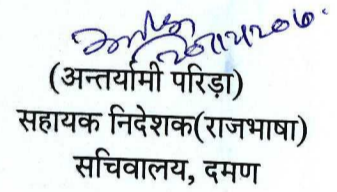 (अन्तर्यामी परिड़ा)
सहायक निदेशक(राजभाषा)
सचिवालय, दमण